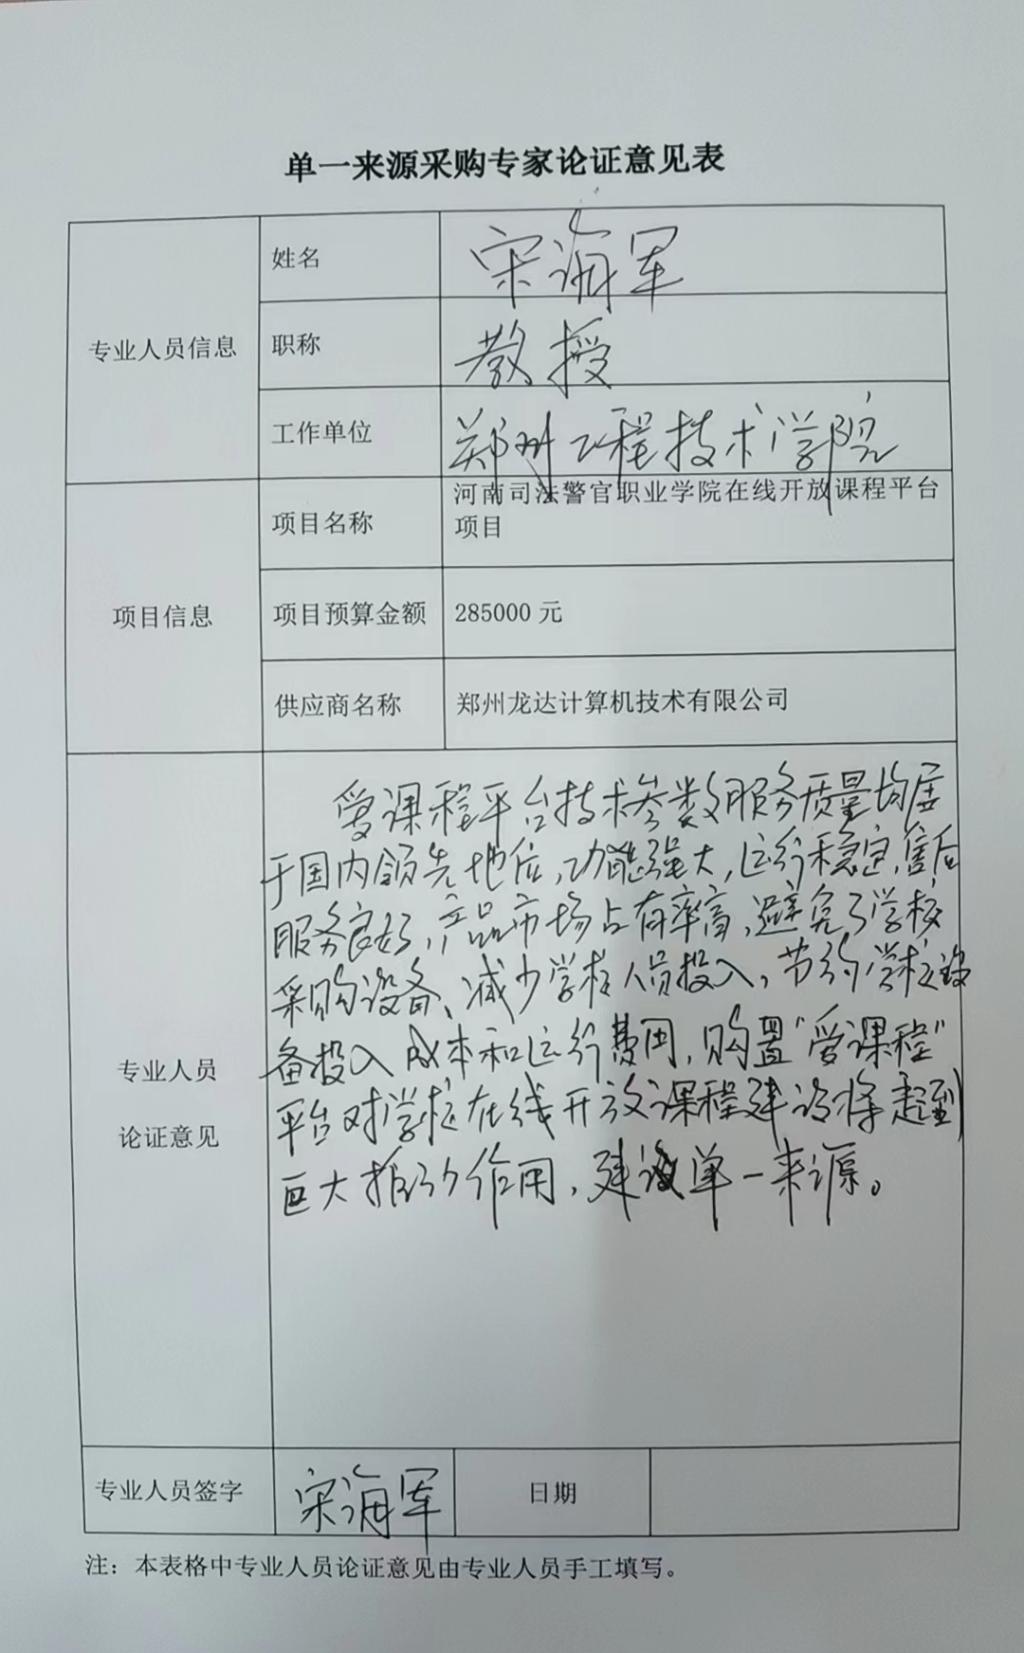 单一来源采购专家论证意见表
专业人员信息
姓名
宋海军
职称
教授
工作单位
郑州工程技术学院
项目信息
项目名称
河南司法警官职业学院在线开放课程平台
项目
项目预算金额
285000 元
供应商名称
郑州龙达计算机技术有限公司
专业人员
论证意见
爱课程平台技术参数服务质量均居
于国内领先地位,功能强大,运行稳定,售后
服务良好,产品市场占有率高,避免了学校
采购设备、减少学校人员投入,节约学校设
备投入成本和运行费用,购置“爱课程”
平台对学校在线开放课程建设将起到
巨大推动作用,建议单一来源。
专业人员签字
宋海军
日期
注：本表格中专业人员论证意见由专业人员手工填写。